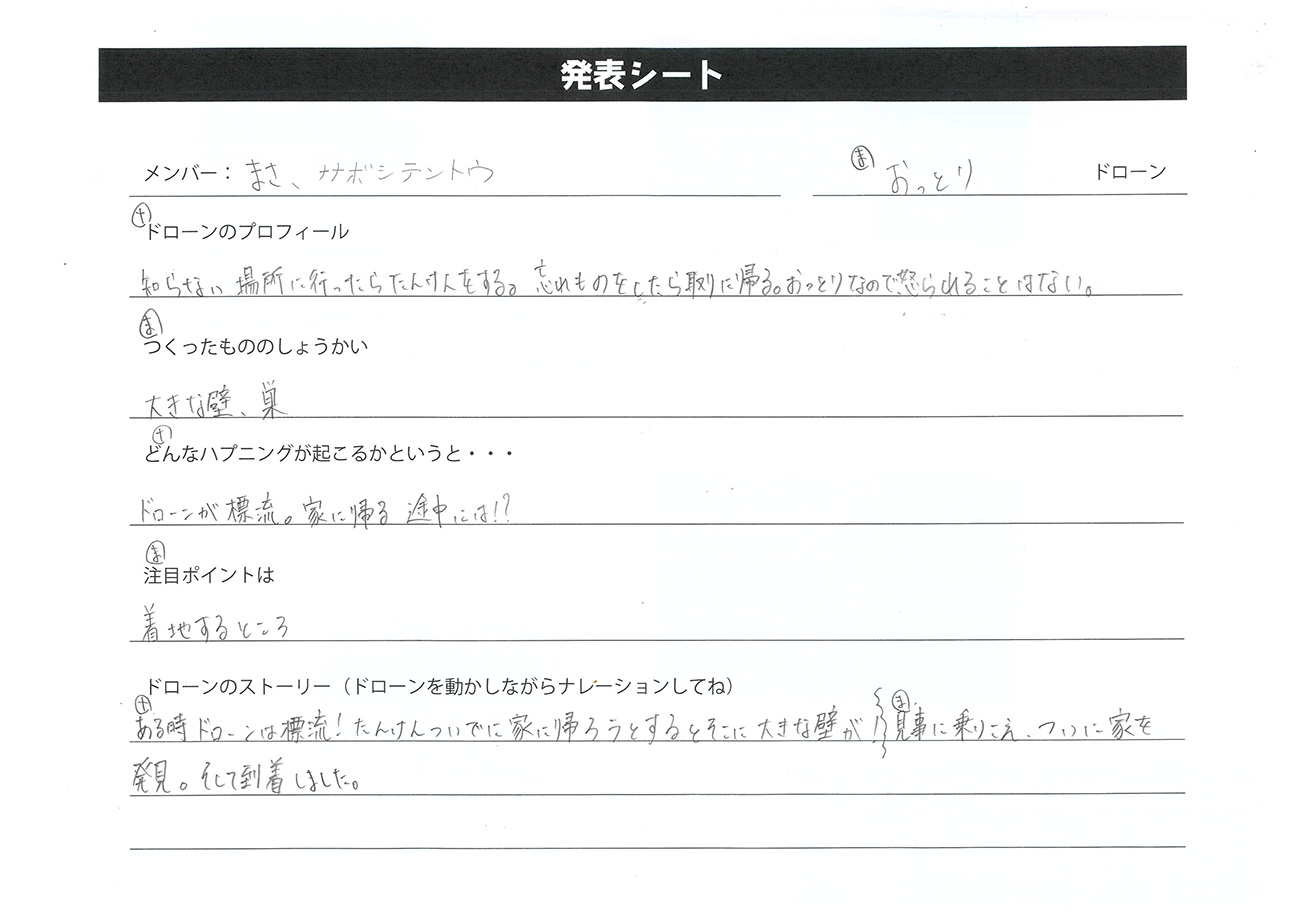 発表シート
メンバー： まさ、ナナボシテントウ
ま おっとり ドローン
ナ
ドローンのプロフィール
知らない場所に行ったらたんけんをする。忘れものをしたら取りに帰る。おっとりなので怒られることはない。
ま
つくったもののしょうかい
大きな壁、巣
ナ
どんなハプニングが起こるかというと・・・
ドローンが標流。家に帰る途中には!?
ま
注目ポイントは
着地するところ
ドローンのストーリー（ドローンを動かしながらナレーションしてね）
ナ ま
ある時ドローンは標流!たんけんついでに家に帰ろうとするとそこに大きな壁が!見事に乗りこえ、ついに家を
発見。そして到着しました。